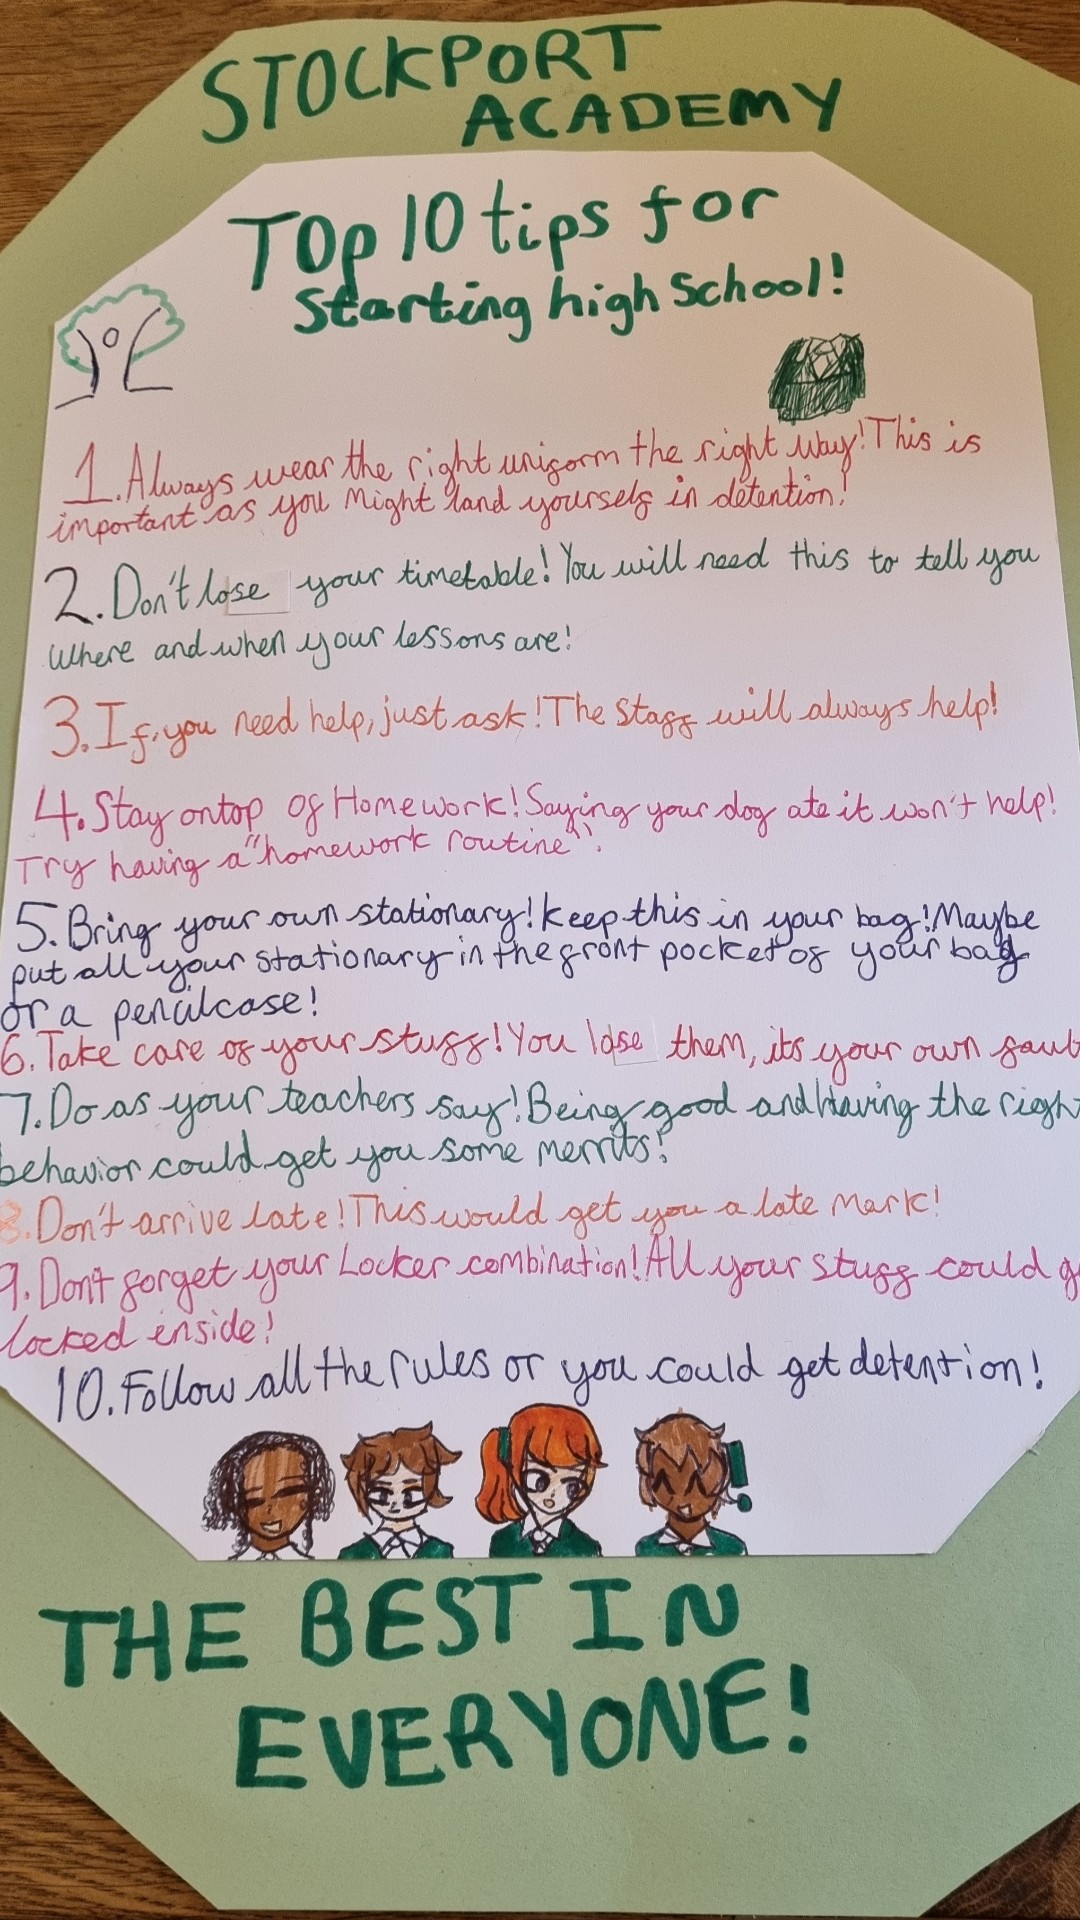 STOCKPORT
ACADEMY
Top 10 tips for
starting high School!
1. Always wear the right uniform the right way! This is
important as you might land yourself in detention!
2. Don't lose your timetable! You will need this to tell you
where and when your lessons are!
3. If you need help, just ask! The staff will always help!
4. Stay on top of Homework! Saying your dog ate it won't help!
Try having a "homework routine".
5. Bring your own stationary! Keep this in your bag! Maybe
put all your stationary in the front pocket of your bag
or a pencilcase!
6. Take care of your stuff! You lose them, its your own
7. Do as your teachers say! Being good and Having the right
behavior could get you some merrits!
8. Don't arrive late! This would get you a late mark!
9. Don't forget your Locker combination! All your stuff could
locked inside!
10. Follow all the rules or you could get detention!
THE BEST IN
EVERYONE!